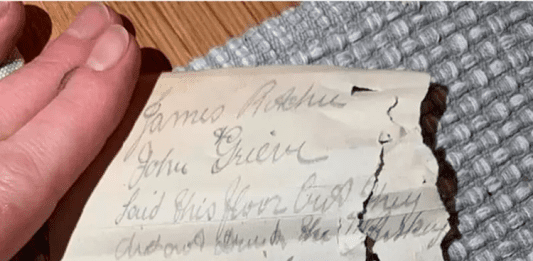 James Ritchie
John Grieve
laid this floor but they
did not drink the whisky